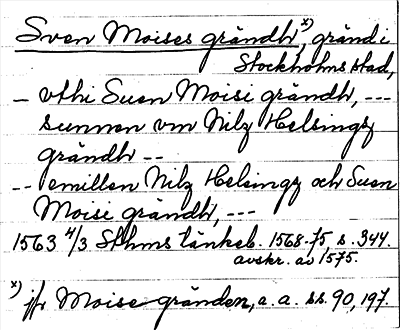 Sven Moises grändh, x) gränd i
Stockholms stad,
— vthi Suen Moisi grändh, ---
sunnen vm Nilz Helsingz
grändh --
-- emillen Nilz Helsingz och Suen
Moisi grändh, ---
1563 4/3 Sthms tänkeb. 1568-75, s. 344.
avskr. av 1575.
x) jfr Moise gränden, a. a. ss. 90, 197.